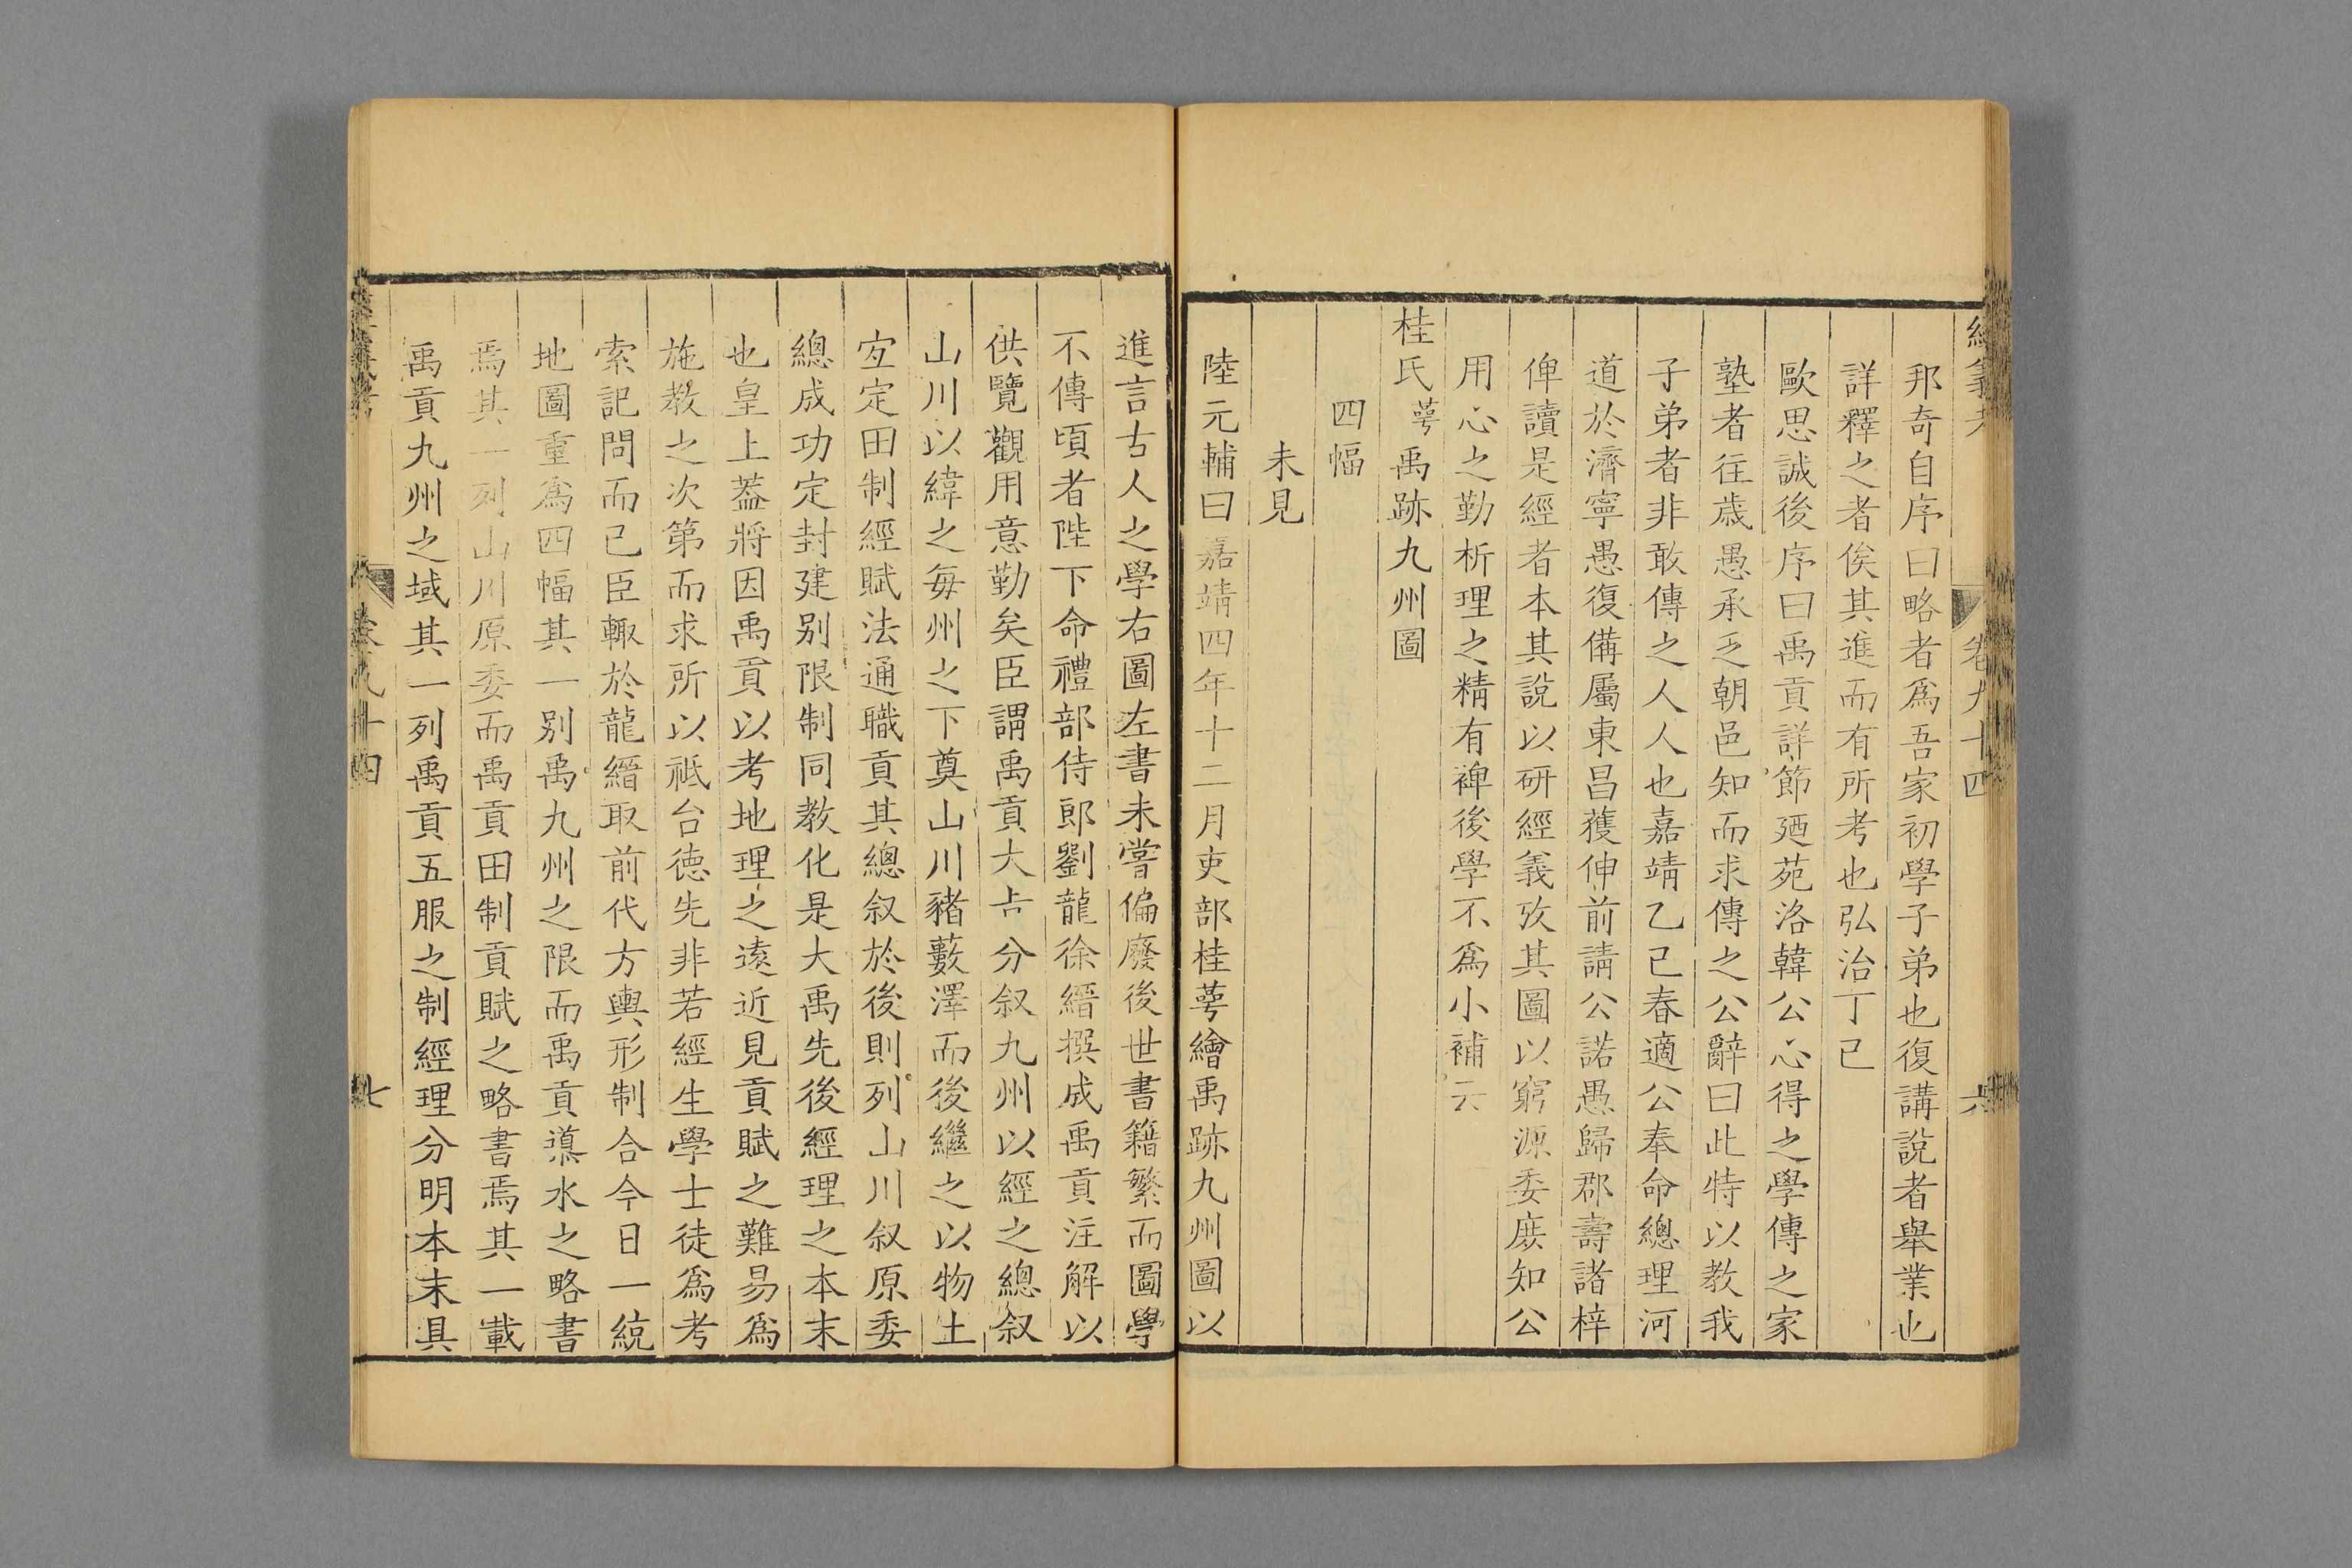 經義考 卷九十四 六
邦奇自序曰略者爲吾家初學子弟也復講說者舉業也
詳釋之者俟其進而有所考也弘治丁巳
歐思誠後序曰禹貢詳節廼苑洛韓公心得之學傳之家
塾者往歲愚承乏朝邑知而求傳之公辭曰此特以教我
子弟者非敢傳之人人也嘉靖乙巳春適公奉命總理河
道於濟寧愚復備屬東昌獲伸前請公諾愚歸郡壽諸梓
俾讀是經者本其說以研經義攷其圖以窮源委庶知公
用心之勤析理之精有裨後學不爲小補云
桂氏萼禹跡九州圖
四幅
未見
陸元輔曰嘉靖四年十二月吏部桂萼繪禹跡九州圖以
進言古人之學右圖左書未嘗偏廢後世書籍繁而圖學
不傳頃者陛下命禮部侍郎劉龍徐縉撰成禹貢注解以
供覽觀用意勤矣臣謂禹貢大㫖分叙九州以經之總叙
山川以緯之每州之下奠山川豬藪澤而後繼之以物土
宜定田制經賦法通職貢其總叙於後則列山川叙原委
總成功定封建别限制同教化是大禹先後經理之本末
也皇上葢將因禹貢以考地理之遠近見貢賦之難易爲
施教之次第而求所以祗台德先非若經生學士徒爲考
索記問而已臣輙於龍縉取前代方輿形制合今日一統
地圖重爲四幅其一别禹九州之限而禹貢導水之略書
焉其一列山川原委而禹貢田制貢賦之略書焉其一載
禹貢九州之域其一列禹貢五服之制經理分明本末具
卷九十四 七